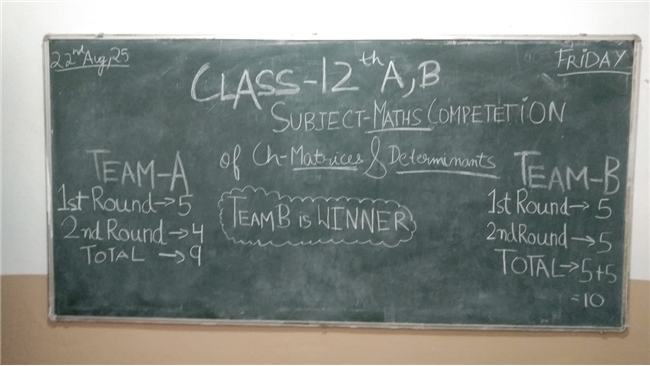 22nd Aug, 25
FRIDAY
CLASS-12th A, B
SUBJECT-MATHS COMPETETION
of Ch-Matrices & Determinants
TEAM-A
1st Round→5
2nd Round→4
TOTAL →9
TEAM B is WINNER
TEAM-B
1st Round→ 5
2nd Round→ 5
TOTAL→5+5
=10